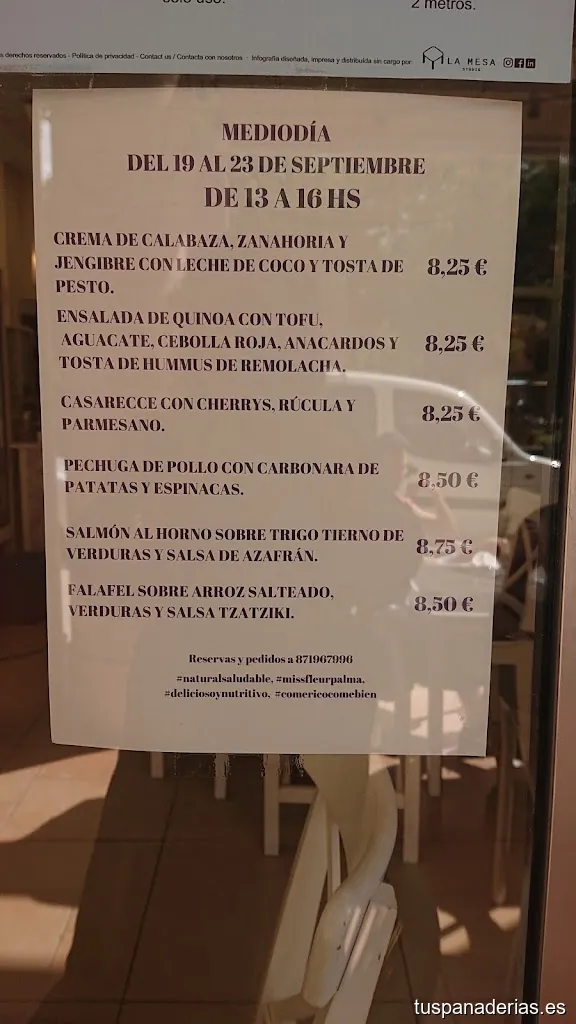 solo uso.
2 metros.
s derechos reservados - Política de privacidad - Contact us / Contacta con nosotros - Infografía diseñada, impresa y distribuida sin cargo por:
LA MESA
STUDIO
MEDIODÍA
DEL 19 AL 23 DE SEPTIEMBRE
DE 13 A 16 HS
CREMA DE CALABAZA, ZANAHORIA Y
JENGIBRE CON LECHE DE COCO Y TOSTA DE 8,25 €
PESTO.
ENSALADA DE QUINOA CON TOFU,
AGUACATE, CEBOLLA ROJA, ANACARDOS Y 8,25 €
TOSTA DE HUMMUS DE REMOLACHA.
CASARECCE CON CHERRYS, RÚCULA Y 8,25 €
PARMESANO.
PECHUGA DE POLLO CON CARBONARA DE 8,50 €
PATATAS Y ESPINACAS.
SALMÓN AL HORNO SOBRE TRIGO TIERNO DE 8,75 €
VERDURAS Y SALSA DE AZAFRÁN.
FALAFEL SOBRE ARROZ SALTEADO, 8,50 €
VERDURAS Y SALSA TZATZIKI.
Reservas y pedidos a 871967996
#naturalsaludable, #missfleurpalma,
#deliciosoynutritivo, #comericocomebien
tuspanaderias.es